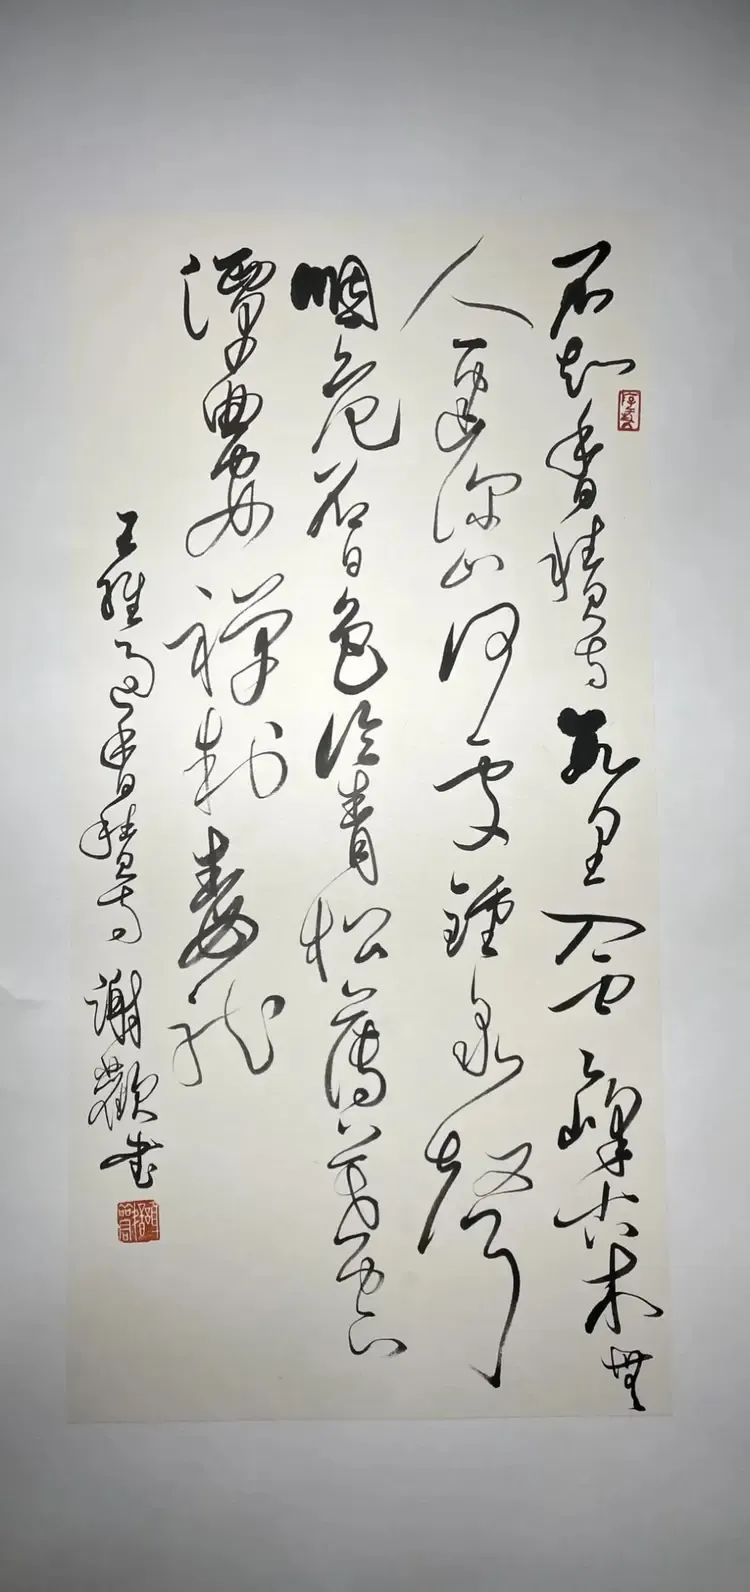 不知香積寺數里入雲峰古木無
人逕深山何處鍾泉聲
咽危石日色冷青松薄暮空
潭曲安禪制毒龍
王維過香積寺謝歡書